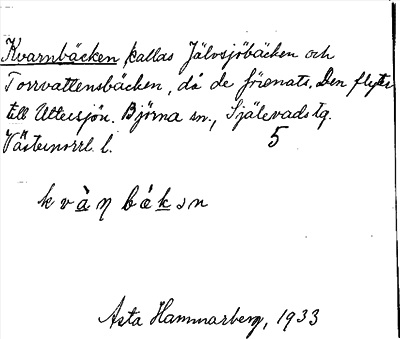 Kvarnbäcken kallas Jälvsjöbäcken och
Torrvattensbäcken, då de förenats. Den flyter
till Uttersjön. Björna sn., Själevads tg.
Västernorrl. l. 5
kvàŋ bákən
Asta Hammarberg, 1933